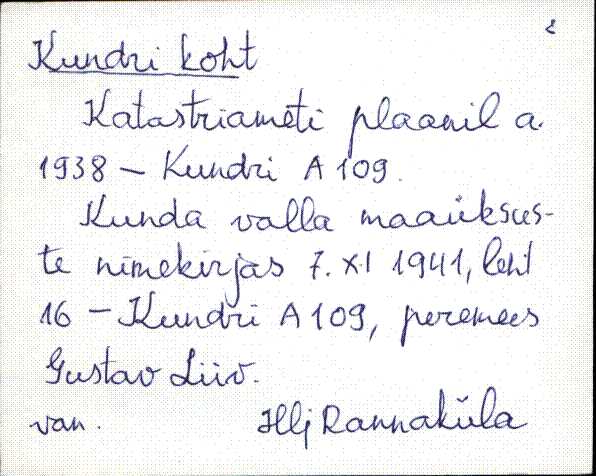 Kundri koht
Katastriameti plaanil a.
1938 – Kundri A 109.
Kunda valla maaüksus-
te nimekirjas 7. XI 1941, leht
16 – Kundri A 109, peremees
Gustav Liiv.
van. Illj Rannaküla